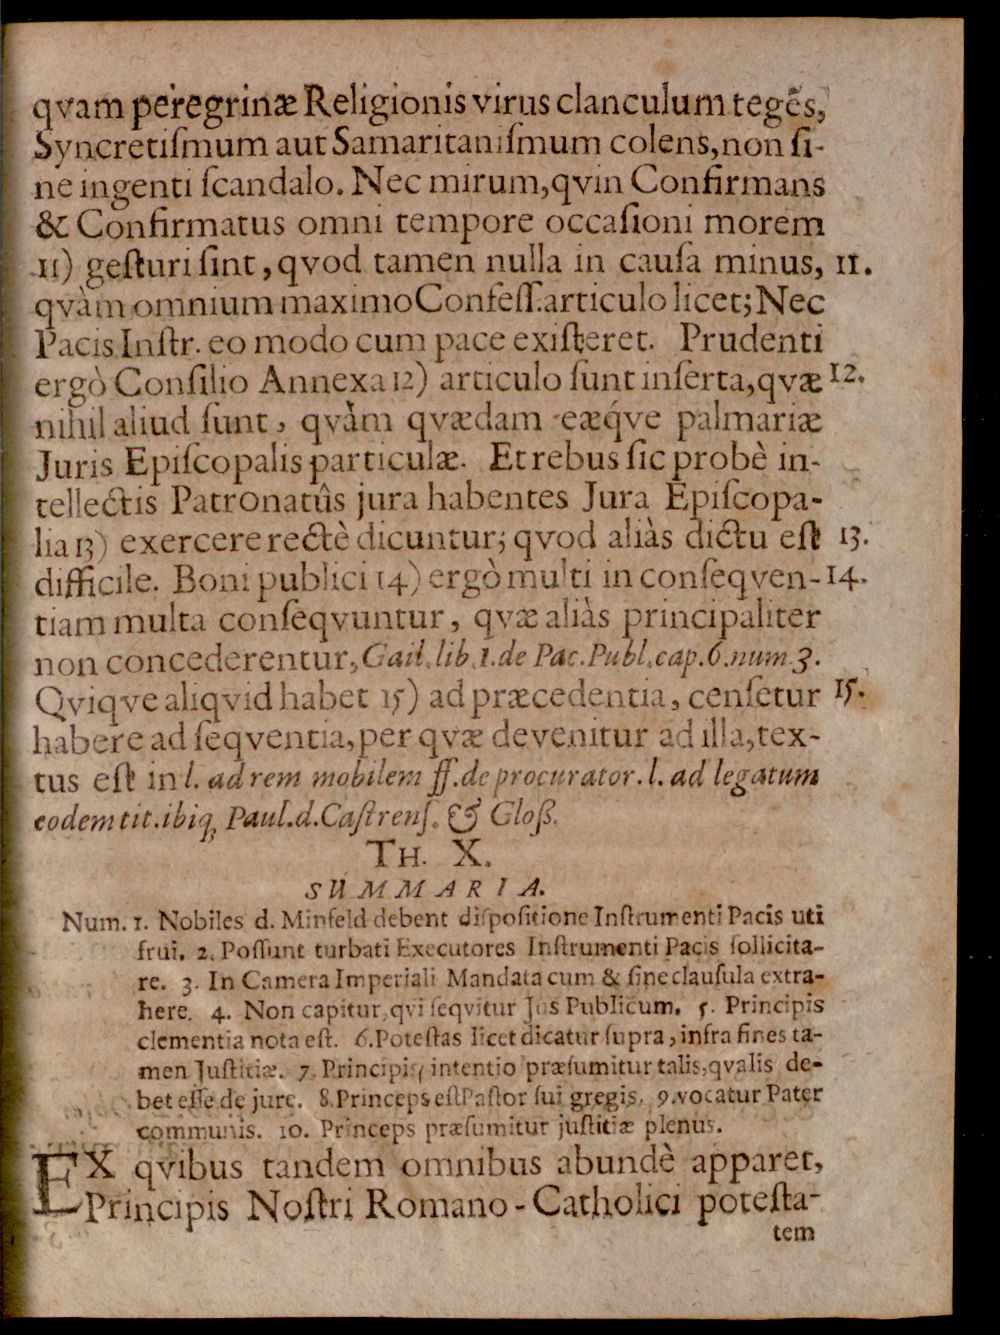 qvam peregrinæ Religionis virus clanculum teges,
Syncretiſmum aut Samaritaniſmum colens, non ſi-
ne ingenti ſcandalo. Nec mirum, qvin Confirmans
& Confirmatus omni tempore occaſioni morem
11) geſturi ſint, qvod tamen nulla in cauſa minus, 11.
qvàm omnium maximo Confeſſ. articulo licet; Nec
Pacis Inſtr. eo modo cum pace exiſteret. Prudenti
ergò Conſilio Annexa 12) articulo ſunt inſerta, qvæ 12.
nihil aliud ſunt, qvàm qvædam eæq́ve palmariæ
Juris Epiſcopalis particulæ. Et rebus ſic probè in-
tellectis Patronatûs jura habentes Jura Epiſcopa-
lia 13) exercere rectè dicuntur; qvod aliàs dictu eſt 13.
difficile. Boni publici 14) ergò multi in conſeqven- 14.
tiam multa conſeqvuntur, qvæ aliàs principaliter
non concederentur, Gail. lib. 1. de Pac. Publ. cap. 6. num. 3.
Qviqve aliqvid habet 15) ad præcedentia, cenſetur 15.
habere ad ſeqventia, per qvæ devenitur ad illa, tex-
tus eſt in l. ad rem mobilem ff. de procurator. l. ad legatum
eodem tit. ibiq; Paul. d. Caſtrenſ. & Gloß.
TH. X.
SUMMARIA.
Num. 1. Nobiles d. Minfeld debent diſpoſitione Inſtrumenti Pacis uti
frui. 2. Poſſunt turbati Executores Inſtrumenti Pacis ſollicita-
re. 3. In Camera Imperiali Mandata cum & ſine clauſula extra-
here. 4. Non capitur, qvi ſeqvitur Jus Publicum. 5. Principis
clementia nota eſt. 6. Poteſtas licet dicatur ſupra, infra fines ta-
men Juſtitiæ. 7. Principis intentio præſumitur talis, qvalis de-
bet eſſe de jure. 8. Princeps eſt Paſtor ſui gregis. 9. vocatur Pater
communis. 10. Princeps præſumitur juſtitiæ plenus.
EX qvibus tandem omnibus abundè apparet,
Principis Noſtri Romano-Catholici poteſta-
tem